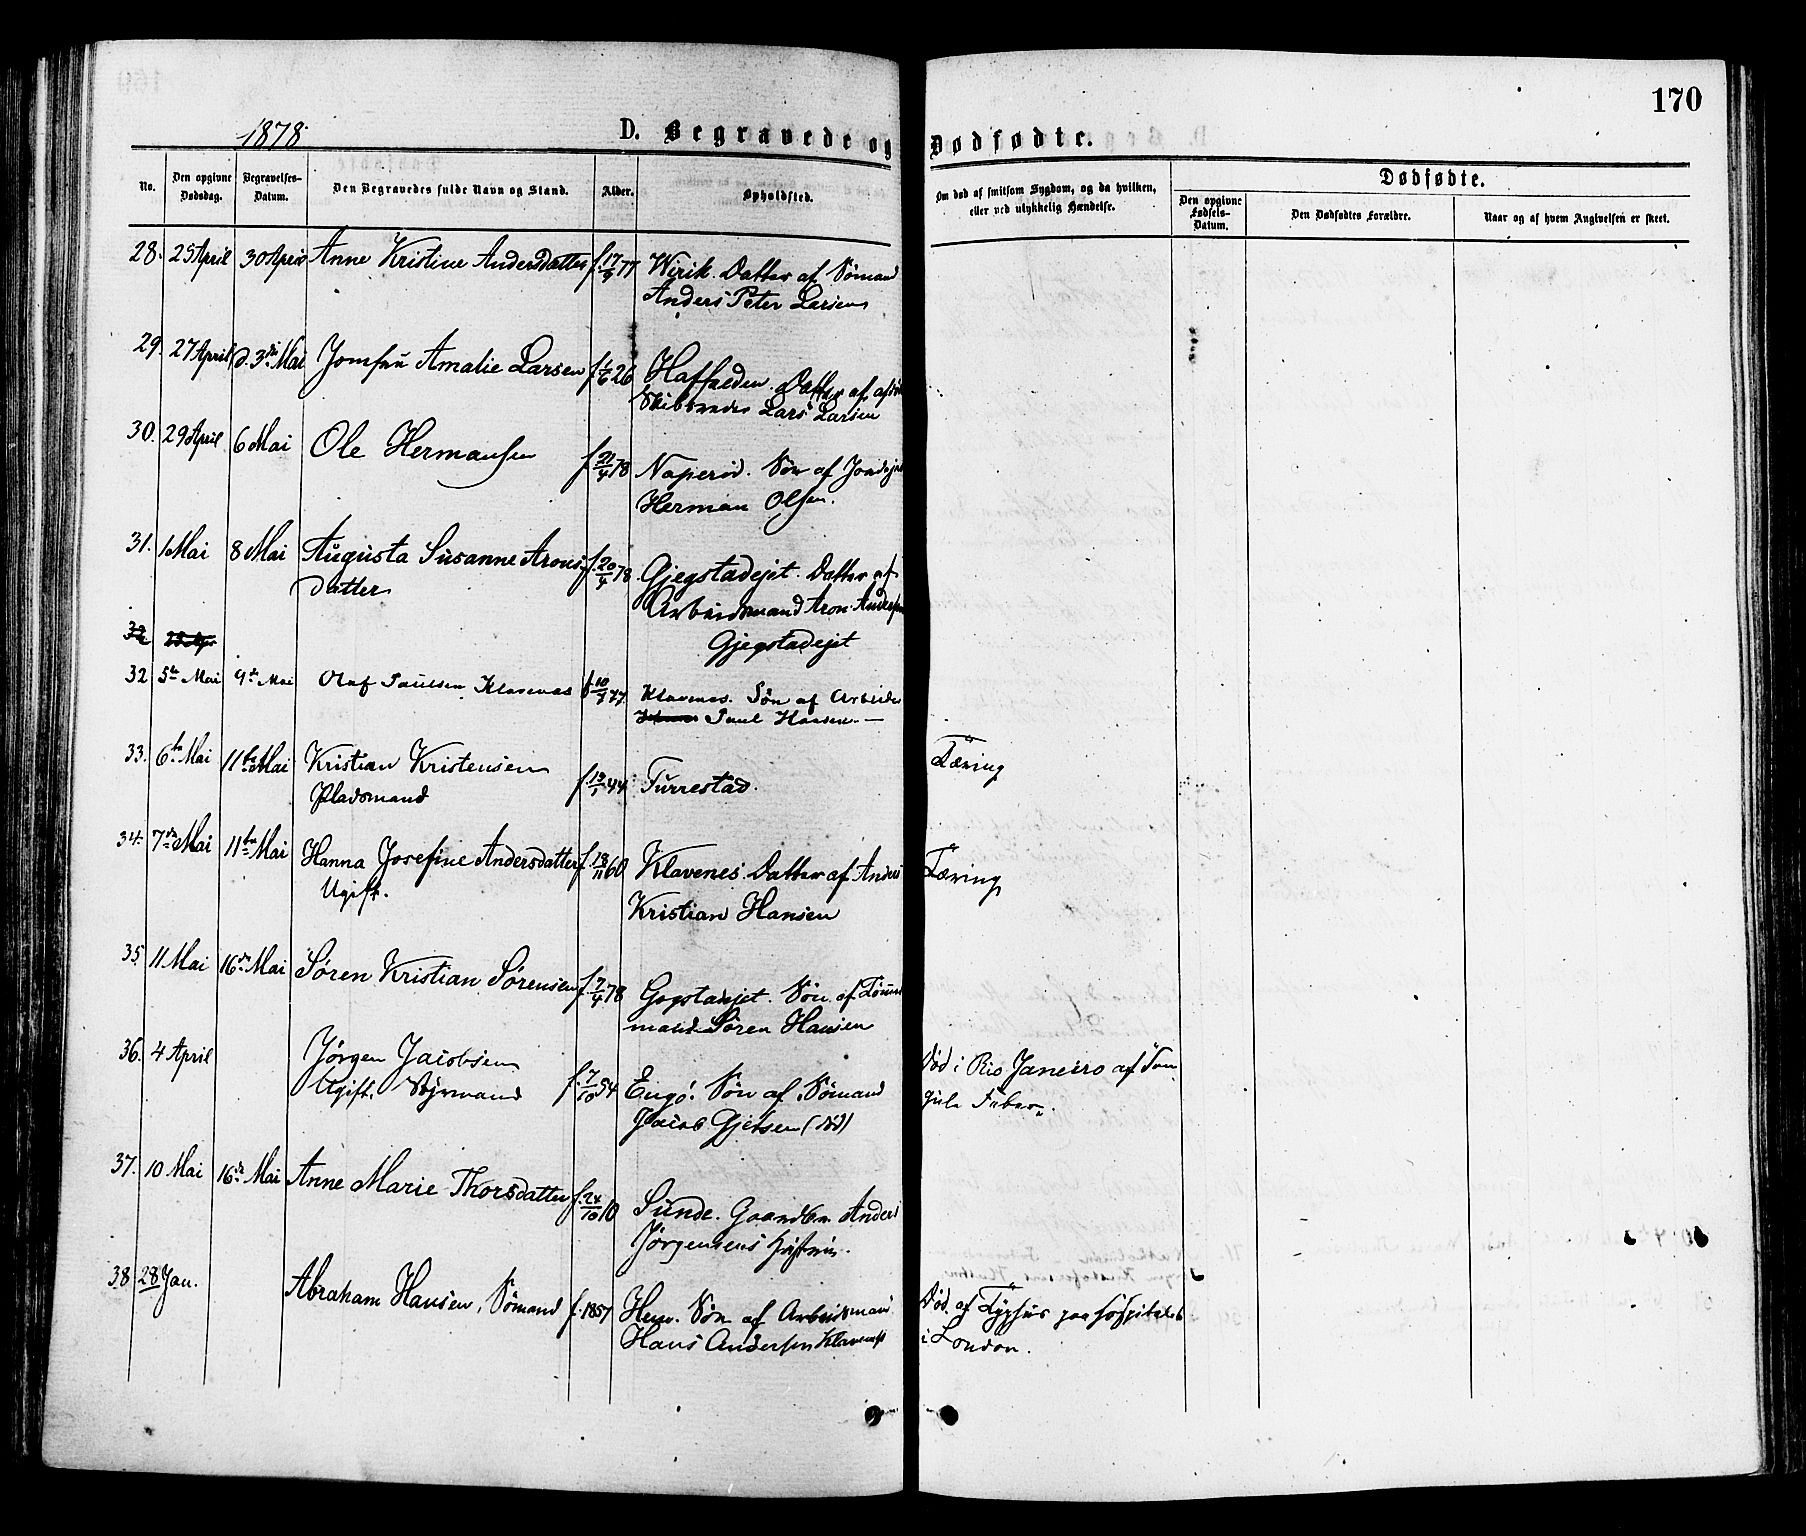 170
1878.
D. Begravede og Dødfødte.
No.
Den opgivne Dødsdag.
Begravelses-Datum.
Den Begravedes fulde Navn og Stand.
Alder.
Opholdssted.
Om død af smitsom Sygdom, og da hvilken, eller ved ulykkelig Hændelse.
Dødfødte.
Den opgivne Fødsels-Datum.
Den Dødfødtes Forældre.
Naar og af hvem Angivelsen er skeet.
28. 25 April 30 April Anne Kristine Andersdatter f. 17/9 77 Virik. Datter af Sømand
Anders Peter Larsen
29. 27 April d. 3die Mai Jomfru Amalie Larsen f. 1/6 26 Haffalden. Datter af afdø
Skibsreder Lars Larsen
30. 29 April 6 Mai Ole Hermansen f. 21/4 78 Naperød. Søn af Jordejer
Herman Olsen.
31. 1 Mai 8 Mai Augusta Susanne Arons f. 20/4 78 Gjegstadejet. Datter af
datter
Arbeidsmand Aron Andersen
Gjegstadejet
32 5te Mai 9de Mai Oluf Paulsen Klavenes f. 10/7 77. Klavenes. Søn af Arbeider
Paul Hansen.—
33. 6te Mai 11te Mai Kristian Kristensen f. 13/1 44 Furrestad. Tæring
Pladsmand
34. 7de Mai 11te Mai Hanna Josefine Andersdatter f. 18/11 60 Klavenes Datter af Anders Tæring
Ugift.
Kristian Hansen
35. 11 Mai 16de Mai Søren Kristian Sørensen f. 7/4 78 Gogstadejet. Søn af Tømmer
mand Søren Hansen
36. 4 April Jørgen Jacobsen Død i Rio Janeiro af den
Ugift. Styrmand f. 7/10 54 Engø. Søn af Sømand
gule Feber.
Jacob Gjertsen (død)
37. 10 Mai 16de Mai Anne Marie Thorsdatter f. 24/10 10 Sunde. Gaardbr Anders
Jørgensens Hustru.
38 28 Jan. Abraham Hansen, Sømand f. 1857 Hem. Søn af Arbeidsmand Død af Typhus paa Hospitalet
Hans Andersen Klavenes i London.